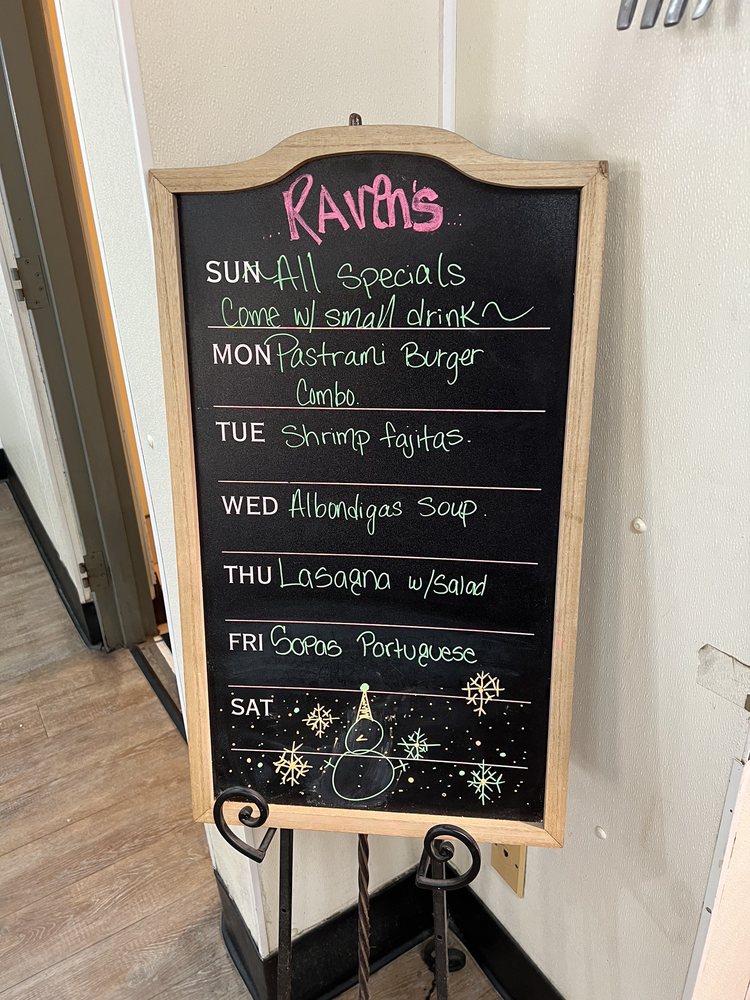 Raven's
SUN ~All Specials
Come w/ small drink~
MON Pastrami Burger
Combo.
TUE Shrimp fajitas.
WED Albondigas Soup.
THU Lasagna w/Salad
FRI Sopas Portuguese
SAT